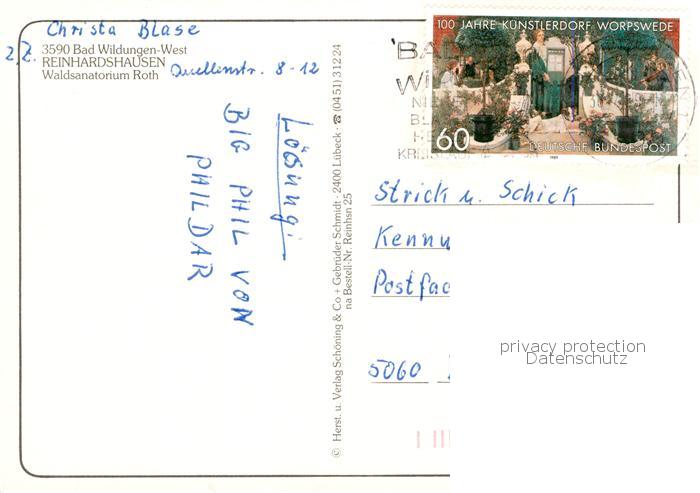 Christa Blase
z.Z. 3590 Bad Wildungen-West
REINHARDSHAUSEN
Waldsanatorium Roth
Quellenstr. 8-12
Lösung:
BIG PHIL VON
PHILDAR
© Herst. u. Verlag Schöning & Co + Gebrüder Schmidt · 2400 Lübeck · ☎ (0451) 31224
na Bestell-Nr. Reinhsn 25
100 JAHRE KÜNSTLERDORF WORPSWEDE
60
DEUTSCHE BUNDESPOST
1989
Strick u. Schick
5060
privacy protection
Datenschutz